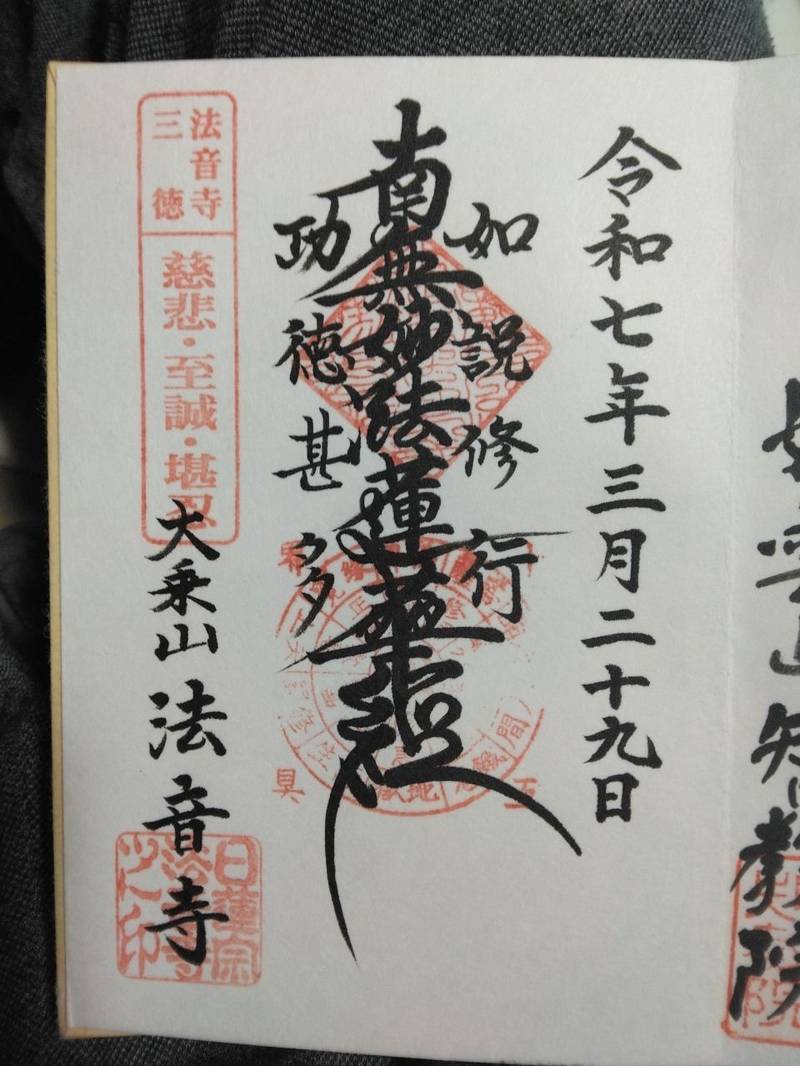 令和七年三月二十九日
如説修行
南無妙法蓮華経
功徳甚多
法音寺
三徳
慈悲・至誠・堪忍
大乗山 法音寺
日蓮宗
法音寺
之印
教院